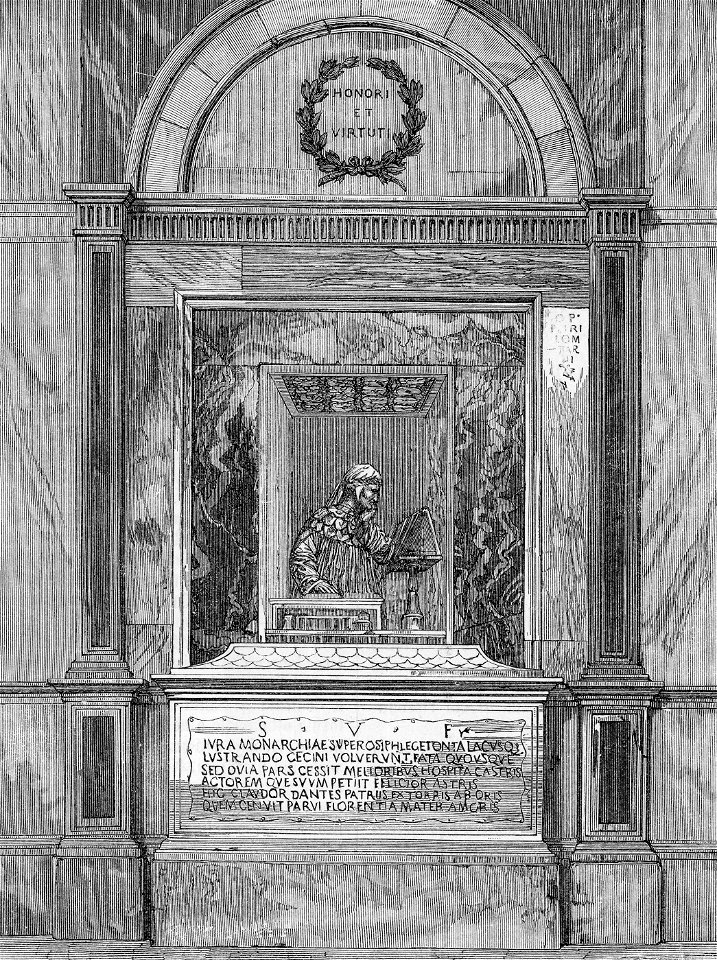 HONORI
ET
VIRTUTI
OP
PETRI
LOM
BAR
DI
S. V. F.
IVRA MONARCHIAE SVPEROS PHLEGETONTA LACVSQ
LVSTRANDO CECINI VOLVERVNT FATA QVOVSQVE
SED QVIA PARS CESSIT MELIORIBVS HOSPITA CASTRIS
ACTOREM QVE SVVM PETIIT FELICIOR ASTRIS
HIC CLAVDOR DANTES PATRIIS EXTORRIS AB ORIS
QVEM GENVIT PARVI FLORENTIA MATER AMORIS